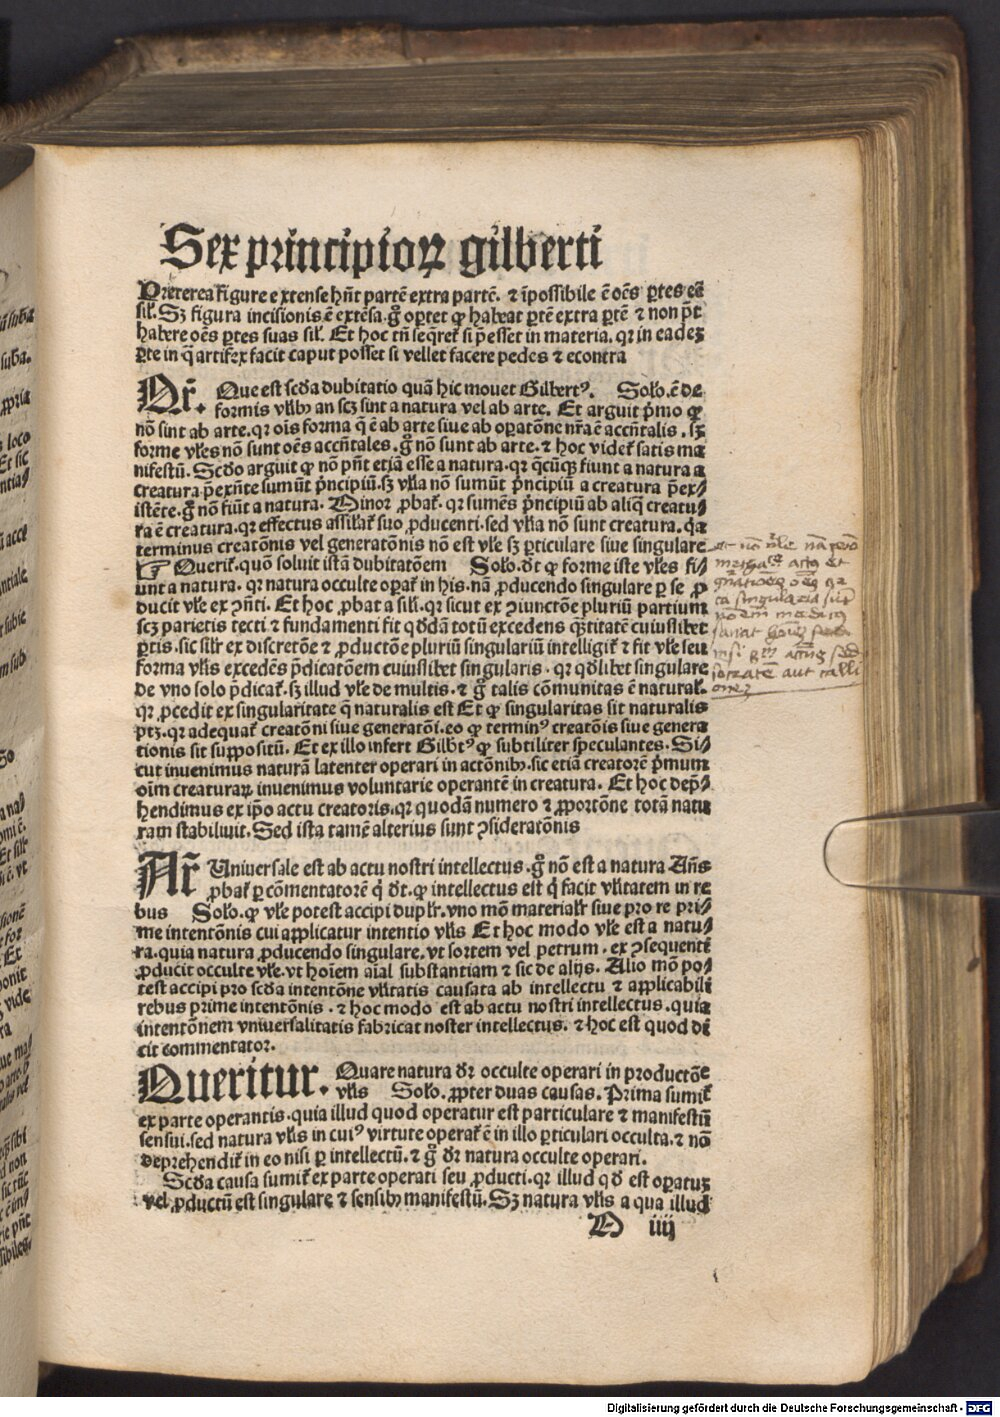 Sex principioꝝ gilberti
Preterea figure extense hn̄t partē extra partē. ⁊ īpossibile ē oēs ꝑtes eē
sil̄. Sꝫ figura incisionis ē extēsa. gͦ oꝑtet ꝙ habeat ꝑtē extra ꝑtē ⁊ non p̄t
habere oēs ꝑtes suas sil̄. Et hoc tn̄ seq̄ret̄ si p̄esset in materia. qꝛ in eadeꝫ
ꝑte in q̄ artifex facit caput posset si vellet facere pedes ⁊ econtra
Qr̄. Que est scd̄a dubitatio quā hic mouet Gilbertꝰ. Solo. ē de
formis vl̄ibꝫ an scꝫ sint a natura vel ab arte. Et arguit pͥmo ꝙ
nō sint ab arte. qꝛ oīs forma q̄ ē ab arte siue ab oꝑatōne nr̄a ē accn̄talis. sꝫ
forme vl̄es nō sunt oēs accn̄tales. gͦ nō sunt ab arte. ⁊ hoc videt̄ satis ma
nifestū. Scd̄o arguit ꝙ nō pn̄t etiā esse a natura. qꝛ q̄cūqꝫ fiunt a natura a
creatura p̄exn̄te sumūt pͥncipiū. sꝫ vl̄ia nō sumūt pͥncipiū a creatura p̄ex⸗
istēte. gͦ nō fiūt a natura. Minor ꝓbat̄. qꝛ sumēs pͥncipiū ab aliq̄ creatu⸗
ra ē creatura. qꝛ effectus assil̄at̄ suo ꝓducenti. sed vl̄ia nō sunt creatura. qͥa
terminus creatōnis vel generatōnis nō est vl̄e sꝫ ꝑticulare siue singulare
☞ Querit̄. quō soluit istā dubitatōem Solo. dr̄t ꝙ forme iste vl̄es fi⸗
unt a natura. qꝛ natura occulte oꝑat̄ in his. nā ꝓducendo singulare ꝑ se ꝓ
ducit vl̄e ex ꝯn̄ti. Et hoc ꝓbat a sil̄i. qꝛ sicut ex ꝯiunctōe pluriū partium
scꝫ parietis tecti ⁊ fundamenti fit qd̄dā totū excedens q̄ꝫtitatē cuiuslibet
ꝑtis. sic sil̄r ex discretōe ⁊ ꝓductōe pluriū singulariū intelligit̄ ⁊ fit vl̄e seu
forma vl̄is excedēs p̄dicatōem cuiuslibet singularis. qꝛ qd̄libet singulare
de vno solo p̄dicat̄. sꝫ illud vl̄e de multis. ⁊ gͦ talis cōmunitas ē natural̄.
qꝛ ꝓcedit ex singularitate q̄ naturalis est Et ꝙ singularitas sit naturalis
ptꝫ. qꝛ adequat̄ creatōni siue generatōi. eo ꝙ terminꝰ creatōnis siue genera
tionis sit suppositū. Et ex illo infert Gilbt̄ꝰ ꝙ subtiliter speculantes. Si⸗
cut inuenimus naturā latenter operari in actōnibꝫ. sic etiā creatorē pͥmum
oīm creaturaꝝ inuenimus voluntarie operantē in creatura. Et hoc dep̄⸗
hendimus ex ip̄o actu creatoris. qꝛ quodā numero ⁊ ꝓportōne totā natu
ram stabiliuit. Sed ista tamē alterius sunt ꝯsideratōnis
Ar̄ Uniuersale est ab actu nostri intellectus. gͦ nō est a natura Añs
ꝓbat̄ ꝑ cōmentatorē qͥ dt̄. ꝙ intellectus est qͥ facit vl̄itatem in re
bus Solo. ꝙ vl̄e potest accipi dupl̄r. vno mō material̄r siue pro re pri⸗
me intentōnis cui applicatur intentio vl̄is Et hoc modo vl̄e est a natu⸗
ra. quia natura ꝓducendo singulare. vt sortem vel petrum. ex ꝯsequenti
ꝓducit occulte vl̄e. vt hoīem aīal substantiam ⁊ sic de alijs. Alio mō po⸗
test accipi pro scd̄a intentōne vl̄itatis causata ab intellectu ⁊ applicabili
rebus prime intentōnis. ⁊ hoc modo est ab actu nostri intellectus. quia
intentōnem vniuersalitatis fabricat noster intellectus. ⁊ hoc est quod di
cit commentator.
Queritur. Quare natura dr̄ occulte operari in productōe
vl̄is Solo. ꝓpter duas causas. Prima sumit̄
ex parte operantis. quia illud quod operatur est particulare ⁊ manifestū
sensui. sed natura vl̄is in cuiꝰ virtute operat̄ ē in illo ꝑticulari occulta. ⁊ nō
deprehendit̄ in eo nisi ꝑ intellectū. ⁊ gͦ dr̄ natura occulte operari.
Scd̄a causa sumit̄ ex parte operati seu ꝓducti. qꝛ illud qd̄ est oꝑatuꝫ
vel ꝓductū est singulare ⁊ sensibꝫ manifestū. Sꝫ natura vl̄is a qua illud
D iiij
Digitalisierung gefördert durch die Deutsche Forschungsgemeinschaft - DFG